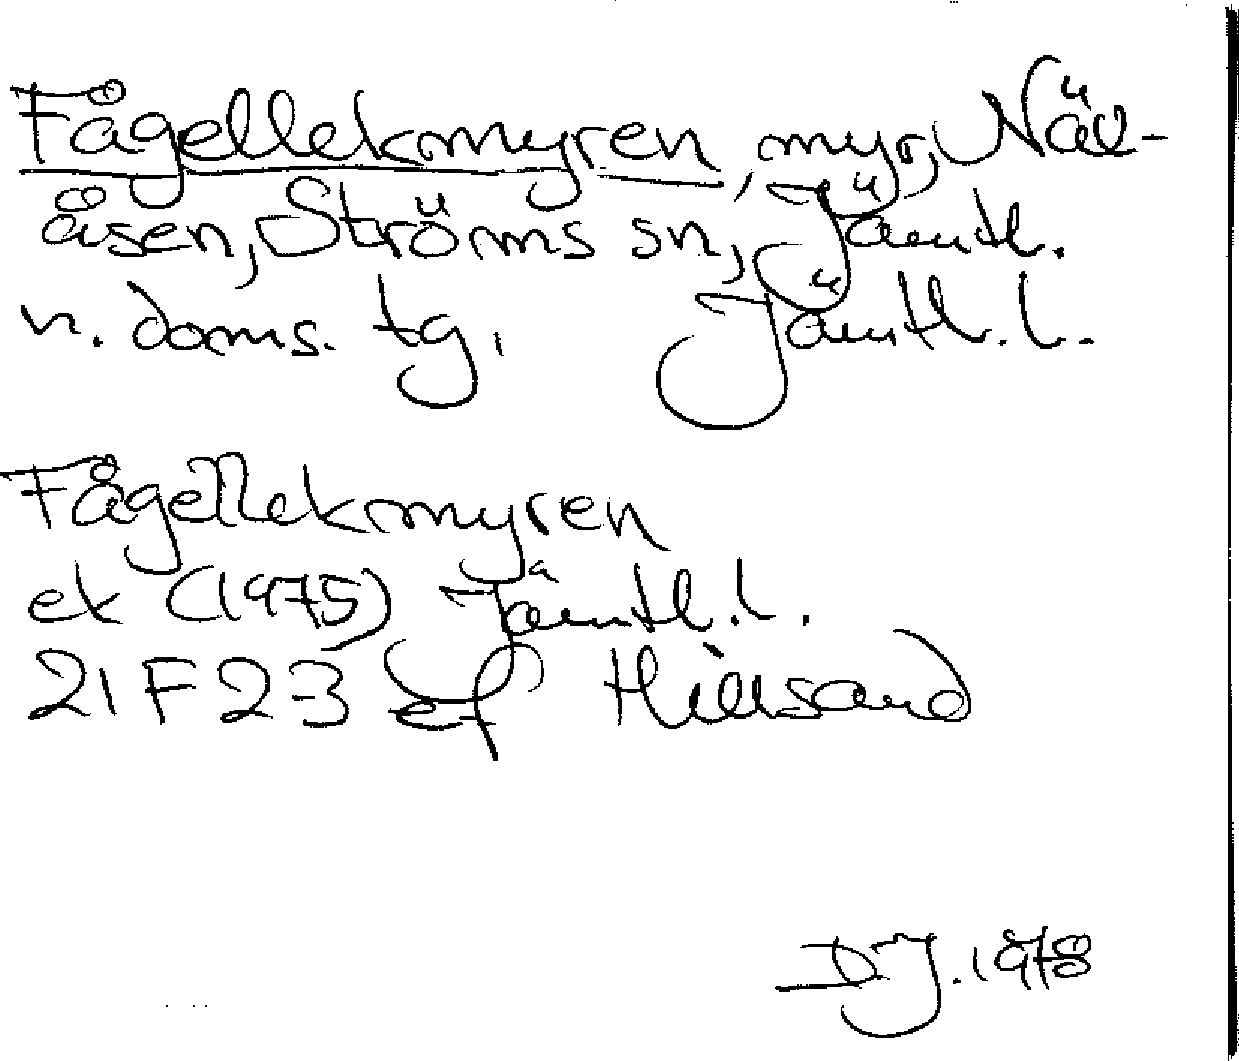 Fågellekmyren, myr, Näv-
åsen, Ströms sn, Jämtl.
n. doms. tg. Jämtl. l.
Fågellekmyren
ek (1975) Jämtl. l.
21 F 23 ef Hillsand
DJ. 1978